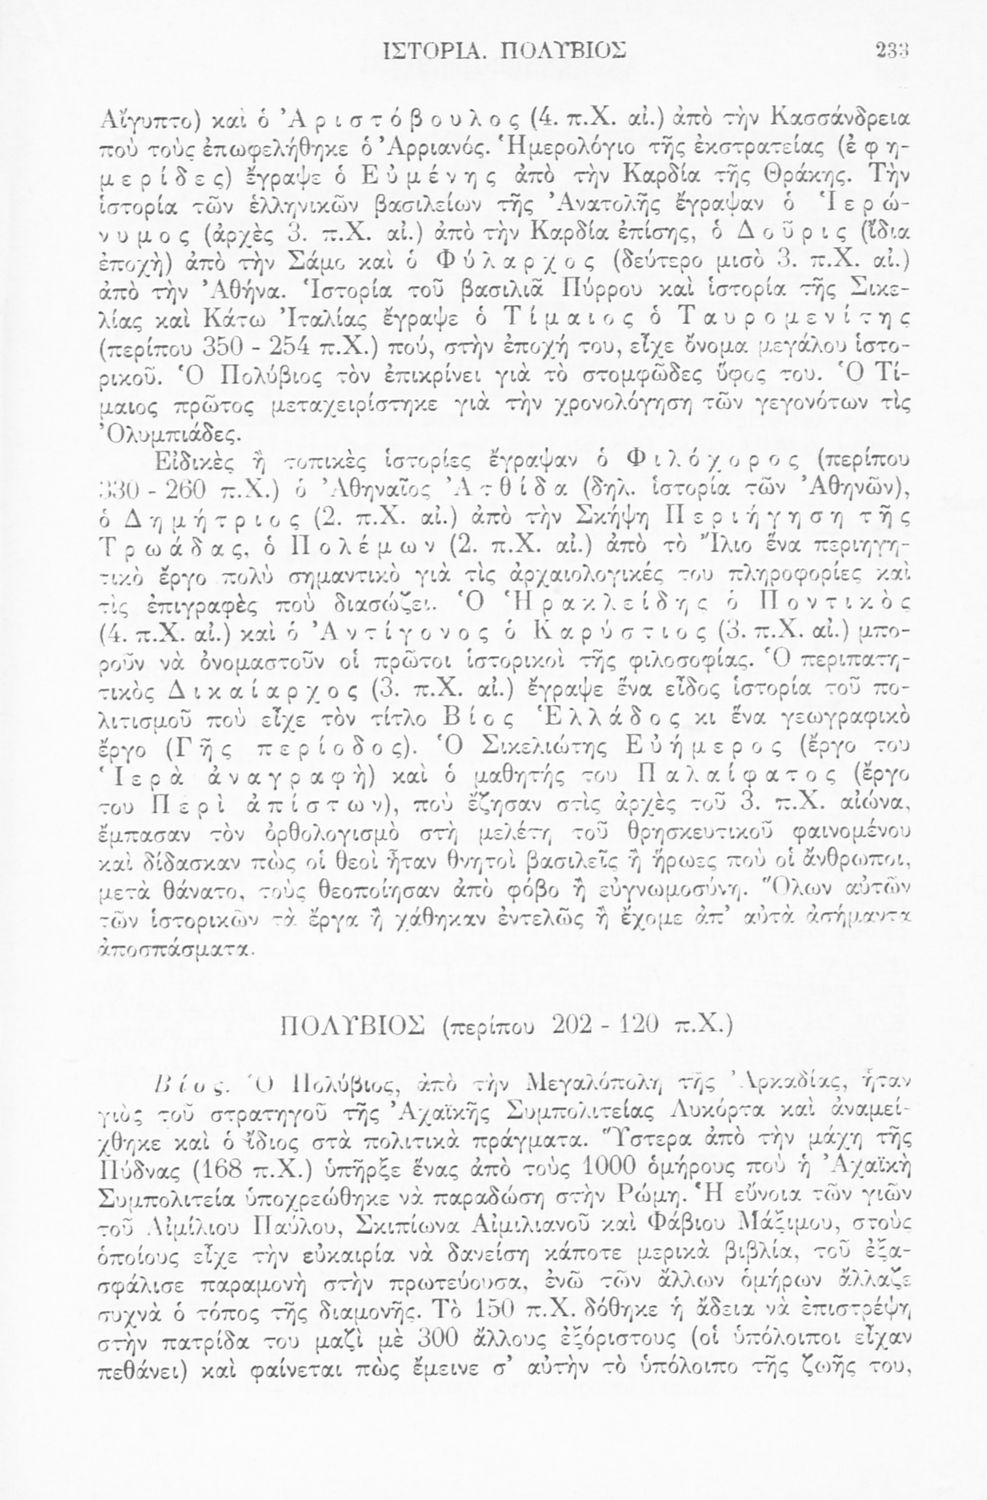 ΙΣΤΟΡΙΑ. ΠΟΛΥΒΙΟΣ 233
Αἴγυπτο) καὶ ὁ Ἀριστόβουλος (4. π.Χ. αἰ.) ἀπὸ τὴν Κασσάνδρεια
ποὺ τοὺς ἐπωφελήθηκε ὁ Ἀρριανός. Ἡμερολόγιο τῆς ἐκστρατείας (ἐφη-
μερίδες) ἔγραψε ὁ Εὐμένης ἀπὸ τὴν Καρδία τῆς Θράκης. Τὴν
ἱστορία τῶν ἑλληνικῶν βασιλείων τῆς Ἀνατολῆς ἔγραψαν ὁ Ἱερώ-
νυμος (ἀρχὲς 3. π.Χ. αἰ.) ἀπὸ τὴν Καρδία ἐπίσης, ὁ Δοῦρις (ἴδια
ἐποχὴ) ἀπὸ τὴν Σάμο καὶ ὁ Φύλαρχος (δεύτερο μισὸ 3. π.Χ. αἰ.)
ἀπὸ τὴν Ἀθήνα. Ἱστορία τοῦ βασιλιᾶ Πύρρου καὶ ἱστορία τῆς Σικε-
λίας καὶ Κάτω Ἰταλίας ἔγραψε ὁ Τίμαιος ὁ Ταυρομενίτης
(περίπου 350 - 254 π.Χ.) πού, στὴν ἐποχή του, εἶχε ὄνομα μεγάλου ἱστο-
ρικοῦ. Ὁ Πολύβιος τὸν ἐπικρίνει γιὰ τὸ στομφῶδες ὕφος του. Ὁ Τί-
μαιος πρῶτος μεταχειρίστηκε γιὰ τὴν χρονολόγηση τῶν γεγονότων τὶς
Ὀλυμπιάδες.
Εἰδικὲς ἢ τοπικὲς ἱστορίες ἔγραψαν ὁ Φιλόχορος (περίπου
330 - 260 π.Χ.) ὁ Ἀθηναῖος Ἀτθίδα (δηλ. ἱστορία τῶν Ἀθηνῶν),
ὁ Δημήτριος (2. π.Χ. αἰ.) ἀπὸ τὴν Σκήψη Περιήγηση τῆς
Τρωάδας, ὁ Πολέμων (2. π.Χ. αἰ.) ἀπὸ τὸ Ἴλιο ἕνα περιηγη-
τικὸ ἔργο πολὺ σημαντικὸ γιὰ τὶς ἀρχαιολογικές του πληροφορίες καὶ
τὶς ἐπιγραφὲς ποὺ διασώζει. Ὁ Ἡρακλείδης ὁ Ποντικὸς
(4. π.Χ. αἰ.) καὶ ὁ Ἀντίγονος ὁ Καρύστιος (3. π.Χ. αἰ.) μπο-
ροῦν νὰ ὀνομαστοῦν οἱ πρῶτοι ἱστορικοὶ τῆς φιλοσοφίας. Ὁ περιπατη-
τικὸς Δικαίαρχος (3. π.Χ. αἰ.) ἔγραψε ἕνα εἶδος ἱστορία τοῦ πο-
λιτισμοῦ ποὺ εἶχε τὸν τίτλο Βίος Ἑλλάδος κι ἕνα γεωγραφικὸ
ἔργο (Γῆς περίοδος). Ὁ Σικελιώτης Εὐήμερος (ἔργο του
Ἱερὰ ἀναγραφὴ) καὶ ὁ μαθητής του Παλαίφατος (ἔργο
του Περὶ ἀπίστων), ποὺ ἔζησαν στὶς ἀρχὲς τοῦ 3. π.Χ. αἰώνα,
ἔμπασαν τὸν ὀρθολογισμὸ στὴ μελέτη τοῦ θρησκευτικοῦ φαινομένου
καὶ δίδασκαν πὼς οἱ θεοὶ ἦταν θνητοὶ βασιλεῖς ἢ ἥρωες ποὺ οἱ ἄνθρωποι,
μετὰ θάνατο, τοὺς θεοποίησαν ἀπὸ φόβο ἢ εὐγνωμοσύνη. Ὅλων αὐτῶν
τῶν ἱστορικῶν τὰ ἔργα ἢ χάθηκαν ἐντελῶς ἢ ἔχομε ἀπ’ αὐτὰ ἀσήμαντα
ἀποσπάσματα.
ΠΟΛΥΒΙΟΣ (περίπου 202 - 120 π.Χ.)
Βίος. Ὁ Πολύβιος, ἀπὸ τὴν Μεγαλόπολη τῆς Ἀρκαδίας, ἦταν
γιὸς τοῦ στρατηγοῦ τῆς Ἀχαϊκῆς Συμπολιτείας Λυκόρτα καὶ ἀναμεί-
χθηκε καὶ ὁ ἴδιος στὰ πολιτικὰ πράγματα. Ὕστερα ἀπὸ τὴν μάχη τῆς
Πύδνας (168 π.Χ.) ὑπῆρξε ἕνας ἀπὸ τοὺς 1000 ὁμήρους ποὺ ἡ Ἀχαϊκὴ
Συμπολιτεία ὑποχρεώθηκε νὰ παραδώση στὴν Ρώμη. Ἡ εὔνοια τῶν γιῶν
τοῦ Αἰμίλιου Παύλου, Σκιπίωνα Αἰμιλιανοῦ καὶ Φάβιου Μάξιμου, στοὺς
ὁποίους εἶχε τὴν εὐκαιρία νὰ δανείση κάποτε μερικὰ βιβλία, τοῦ ἐξα-
σφάλισε παραμονὴ στὴν πρωτεύουσα, ἐνῶ τῶν ἄλλων ὁμήρων ἄλλαζε
συχνὰ ὁ τόπος τῆς διαμονῆς. Τὸ 150 π.Χ. δόθηκε ἡ ἄδεια νὰ ἐπιστρέψη
στὴν πατρίδα του μαζὶ μὲ 300 ἄλλους ἐξόριστους (οἱ ὑπόλοιποι εἶχαν
πεθάνει) καὶ φαίνεται πὼς ἔμεινε σ’ αὐτὴν τὸ ὑπόλοιπο τῆς ζωῆς του,